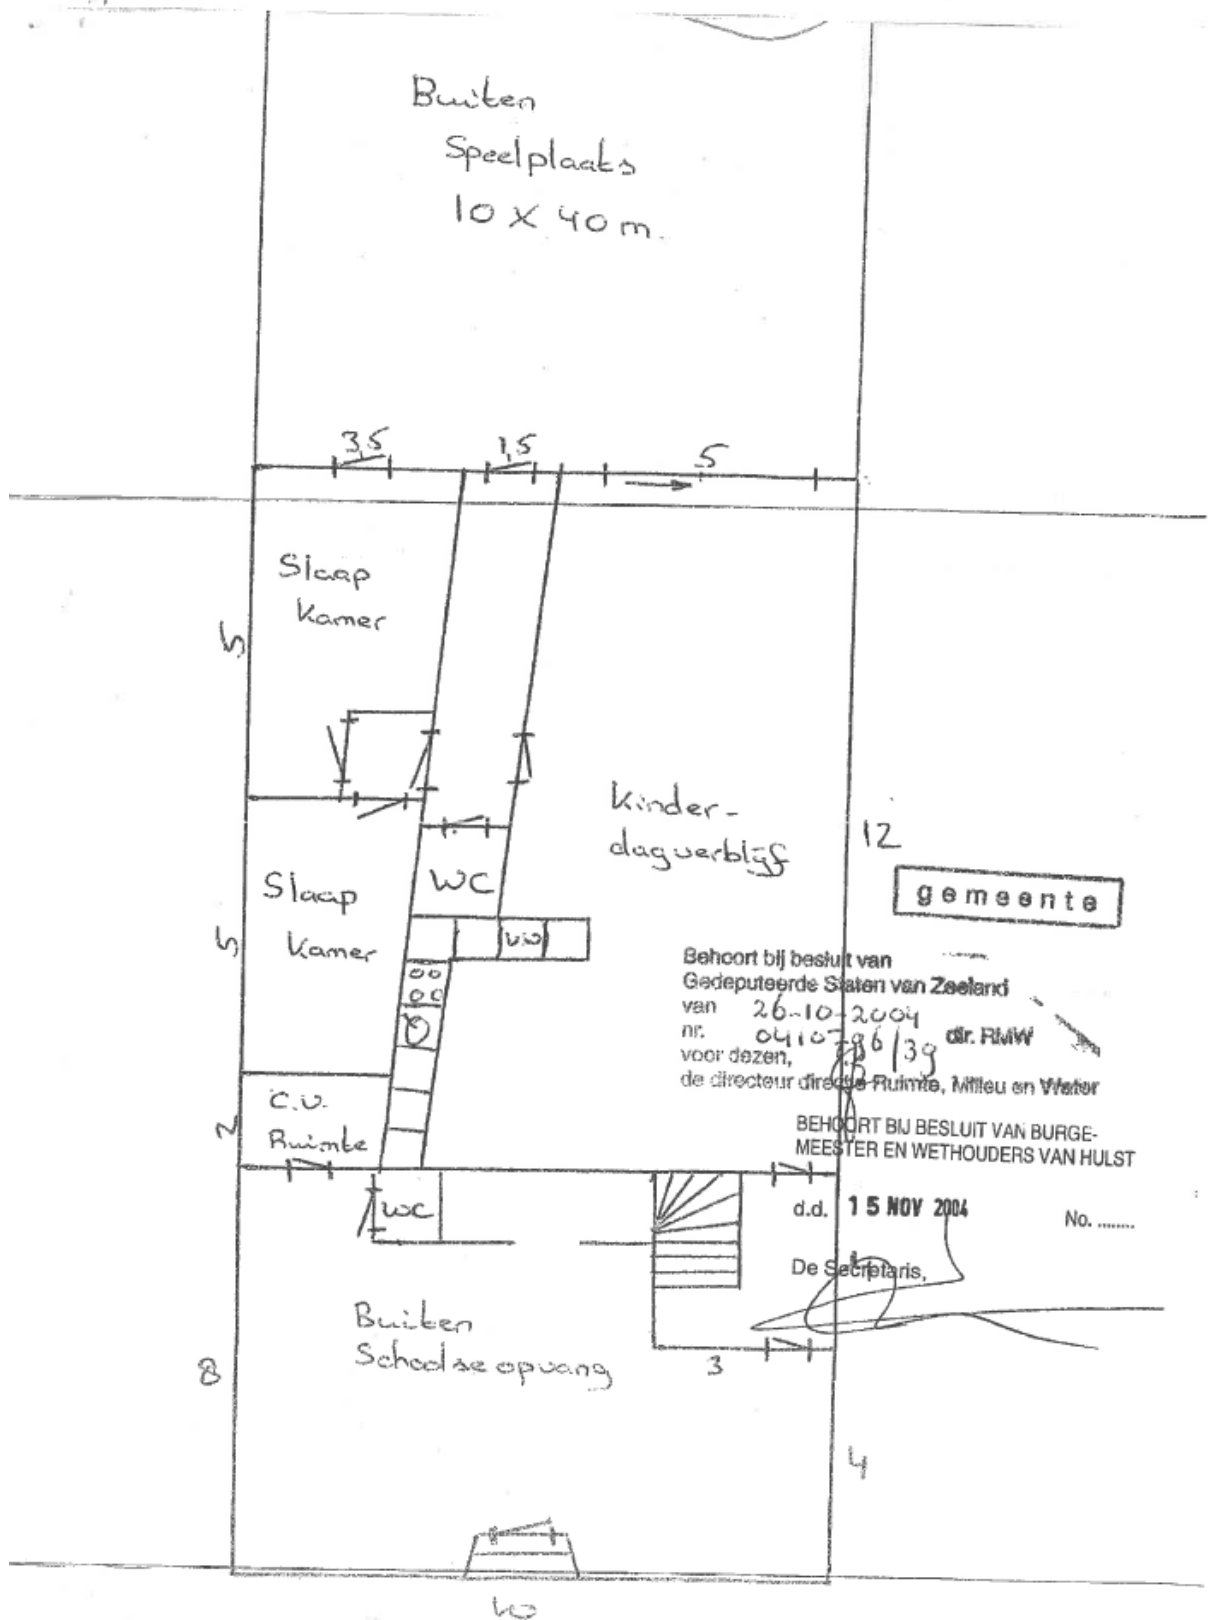 Buiten
Speelplaats
10 X 40 m.
3,5
1,5
5
Slaap
Kamer
5
Kinder-
dagverblijf
12
WC
gemeente
Slaap
Kamer
5
Behoort bij besluit van
Gedeputeerde Staten van Zeeland
van 26-10-2004
nr. dir. RMW
voor dezen,
de directeur directie Ruimte, Milieu en Water
C.V.
Ruimte
2
BEHOORT BIJ BESLUIT VAN BURGE-
MEESTER EN WETHOUDERS VAN HULST
WC
d.d. 15 NOV 2004
No. ........
De Secretaris,
Buiten
Schoolse opvang
8
3
4
10